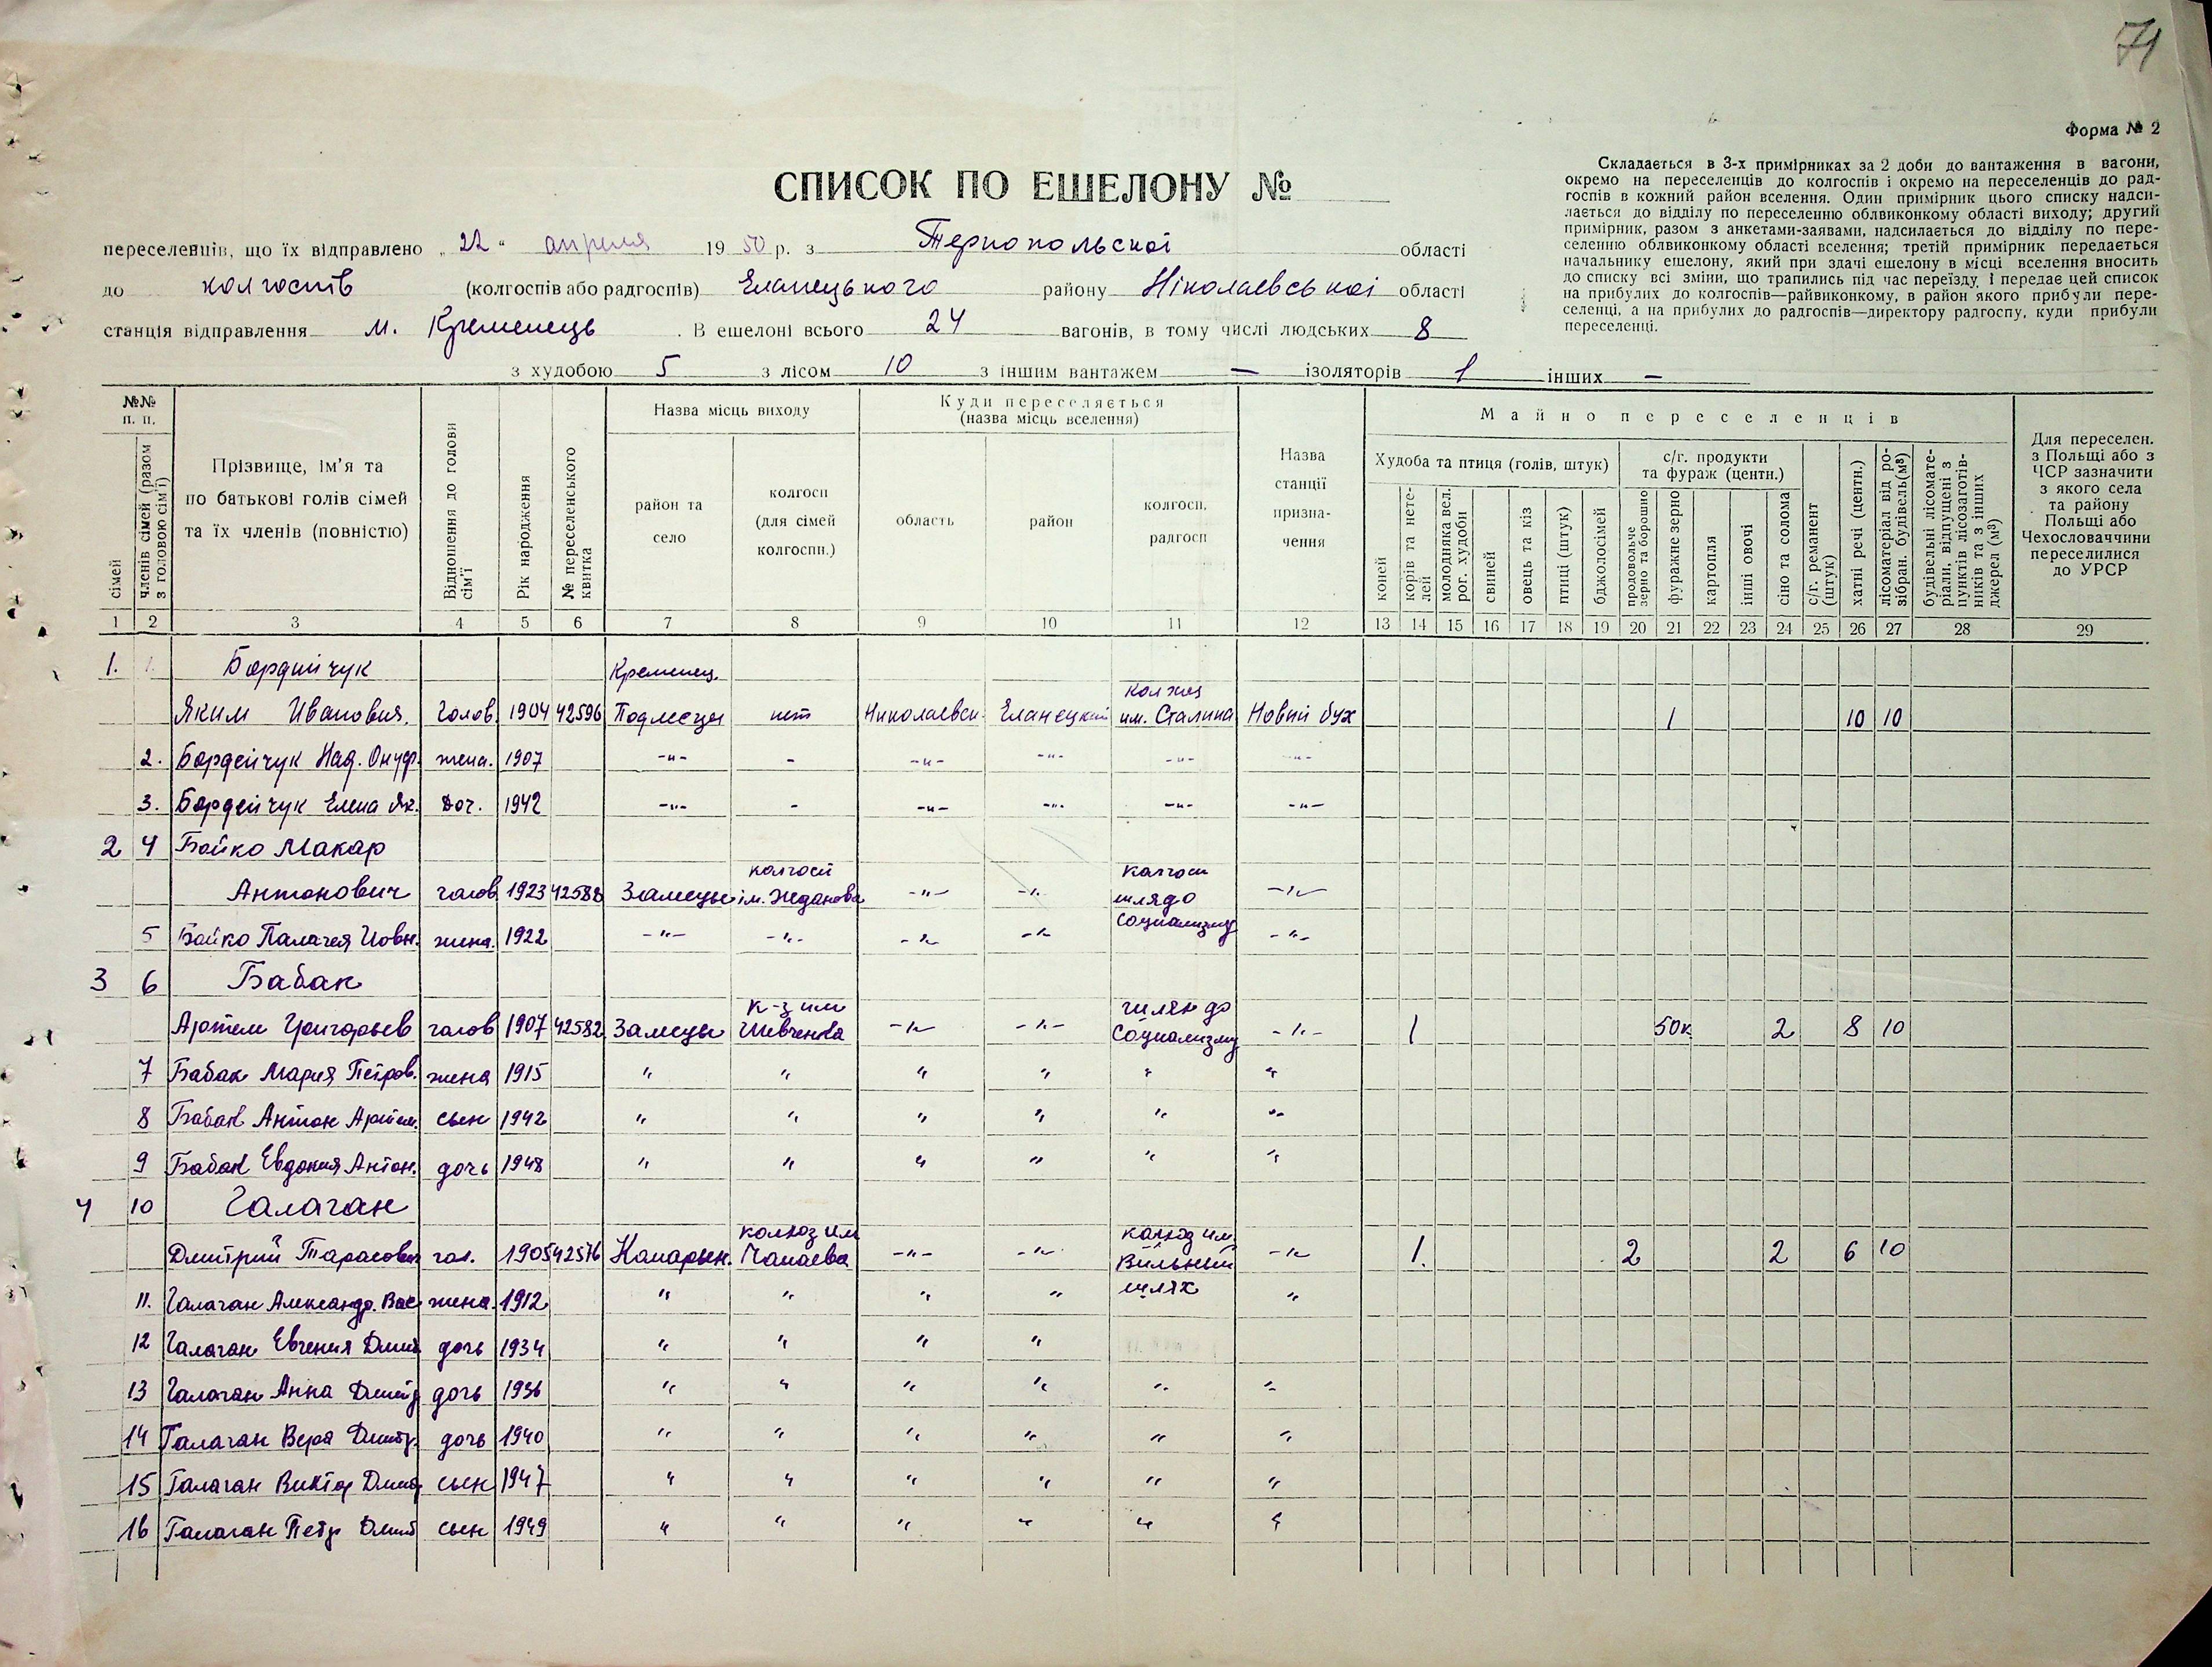 71
Форма № 2
СПИСОК ПО ЕШЕЛОНУ №
Складається в 3-х примірниках за 2 доби до вантаження в вагони,
окремо на переселенців до колгоспів і окремо на переселенців до рад-
госпів в кожний район вселення. Один примірник цього списку надси-
лається до відділу по переселенню облвиконкому області виходу; другий
примірник, разом з анкетами-заявами, надсилається до відділу по пере-
селенню облвиконкому області вселення; третій примірник передається
начальнику ешелону, який при здачі ешелону в місці вселення вносить
до списку всі зміни, що трапились під час переїзду, і передає цей список
на прибулих до колгоспів—райвиконкому, в район якого прибули пере-
селенці, а на прибулих до радгоспів—директору радгоспу, куди прибули
переселенці.
переселенців, що їх відправлено „22“ апреля 1950 р. з Тернопольскої області
до колгоспів (колгоспів або радгоспів) Еланецького району Ніколаевської області
станція відправлення м. Кременець. В ешелоні всього 24 вагонів, в тому числі людських 8
з худобою 5 з лісом 10 з іншим вантажем — ізоляторів 1 інших —
№№ п. п.
сімей
членів сімей (разом з головою сім'ї)
Прізвище, ім'я та
по батькові голів сімей
та їх членів (повністю)
Відношення до голови сім'ї
Рік народження
№ переселенського квитка
Назва місць виходу
район та село
колгосп (для сімей колгоспн.)
Куди переселяється
(назва місць вселення)
область
район
колгосп, радгосп
Назва станції призна-чення
Майно переселенців
Худоба та птиця (голів, штук)
коней
корів та нете-лей
молодняка вел. рог. худоби
свиней
овець та кіз
птиці (штук)
бджолосімей
с/г. продукти та фураж (центн.)
продовольче зерно та борошно
фуражне зерно
картопля
інші овочі
сіно та солома
с/г. реманент (штук)
хатні речі (центн.)
лісоматеріал від ро-зібран. будівель(м³)
будівельні лісомате-ріали, відпущені з пунктів лісозаготів-ників та з інших джерел (м³)
Для переселен.
з Польщі або з
ЧСР зазначити
з якого села
та району
Польщі або
Чехословаччини
переселилися
до УРСР
1 2 3 4 5 6 7 8 9 10 11 12 13 14 15 16 17 18 19 20 21 22 23 24 25 26 27 28 29
1. 1. Бордийчук Кременец.
Яким Иванович. голов. 1904 42596 Подлесцы нет Николаевск. Еланецкий колхоз им. Сталина Новый Буг 1 10 10
2. Бордейчук Над. Онуф. жена. 1907 -"- - -"- -"- -"- -"-
3. Бордейчук Елена Як. доч. 1942 -"- - -"- -"- -"- -"-
2 4 Бойко Макар
Антонович голов 1923 42588 Замецы колгосп ім. Жданова -"- -"- колгосп шлях до социализму -"-
5 Бойко Палагея Иовн. жена. 1922 -"- -"- -"- -"- -"-
3 6 Бабак
Артем Григорьев голов 1907 42582 Замецы к-з им Шевченка -"- -"- шлях до социализму -"- 1 50к. 2 8 10
7 Бабак Мария Петров. жена 1915 " " " " " "
8 Бабак Антон Артем. сын 1942 " " " " " "
9 Бабак Евдокия Антон. дочь 1948 " " " " " "
4 10 Галаган
Дмитрий Тарасович гол. 1905 42576 Комарын. колхоз им Чапаева -"- -"- колхоз им. Вільний шлях -"- 1. 2 2 6 10
11. Галаган Александр. Вас жена. 1912 " " " " "
12 Галаган Евгения Дмит дочь 1934 " " " "
13 Галаган Анна Дмитр дочь 1936 " " " " " "
14 Галаган Вера Дмитр. дочь 1940 " " " " " "
15 Галаган Виктор Дмит сын 1947 " " " " " "
16 Галаган Петр Дмит сын 1949 " " " " " "